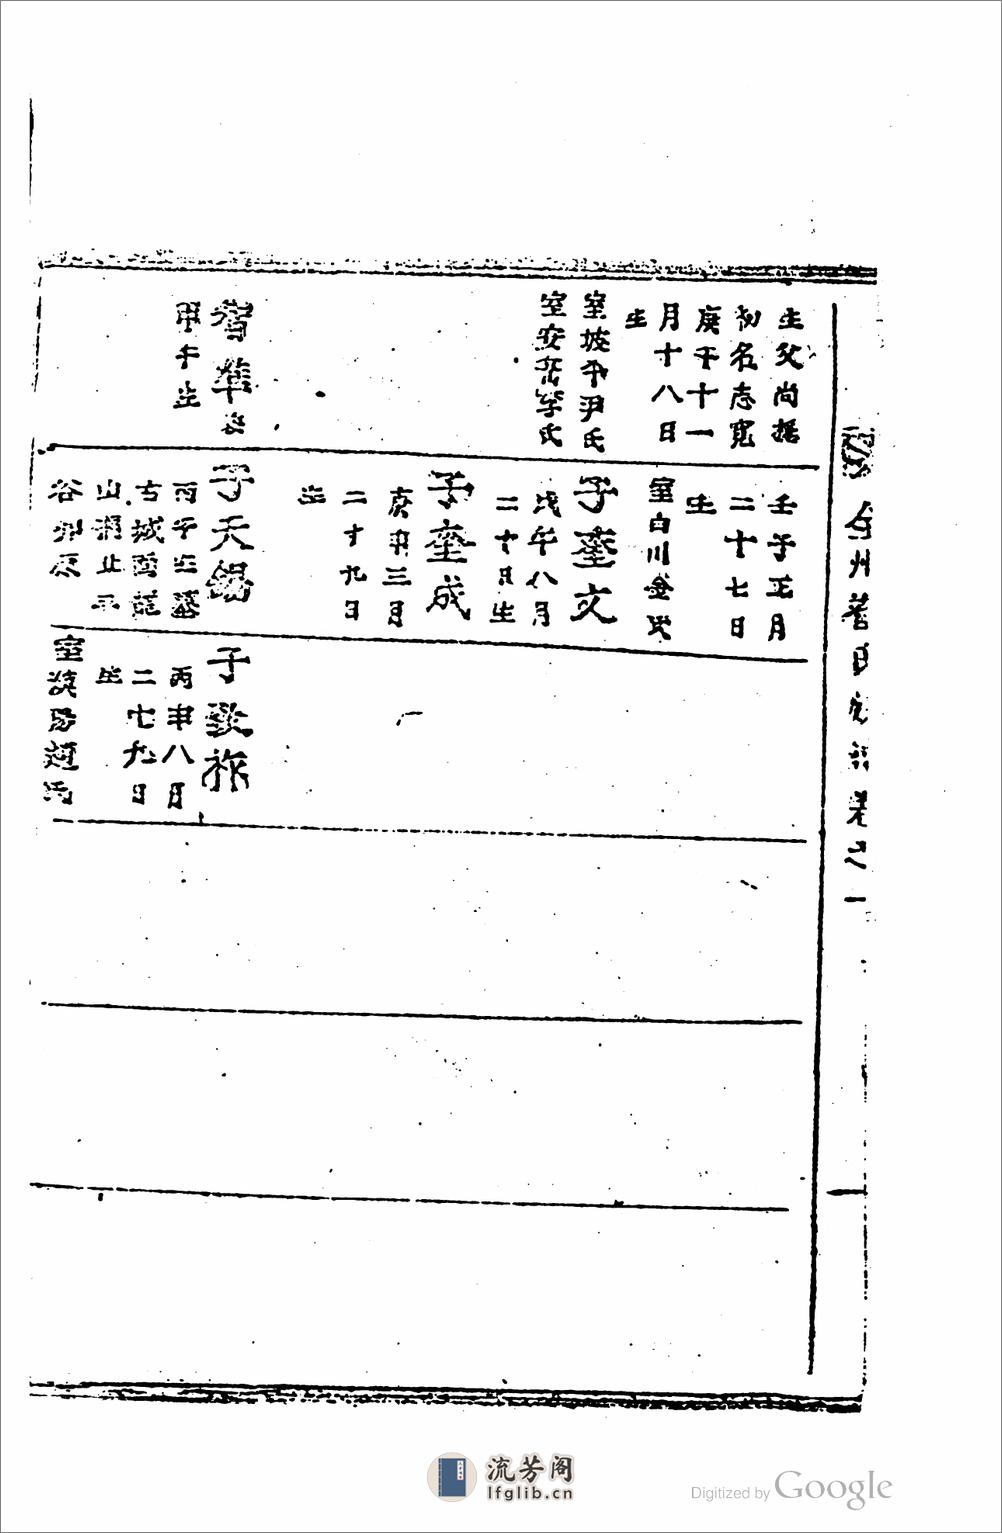 生父尚据
初名志寬
庚午十一
月十八日
生
室坡平尹氏
室安岳李氏
甲午生
壬子正月
二十七日
生
室白川金氏
子奎文
戊午八月
二十日生
子奎成
庚申三月
二十九日
生
子天錫
丙子生墓
古城酉龍
山
谷卯原
子致祚
丙申八月
二十九日
生
室漢陽趙氏
全州
卷之一
流芳阁
lfglib.cn
Digitized by Google